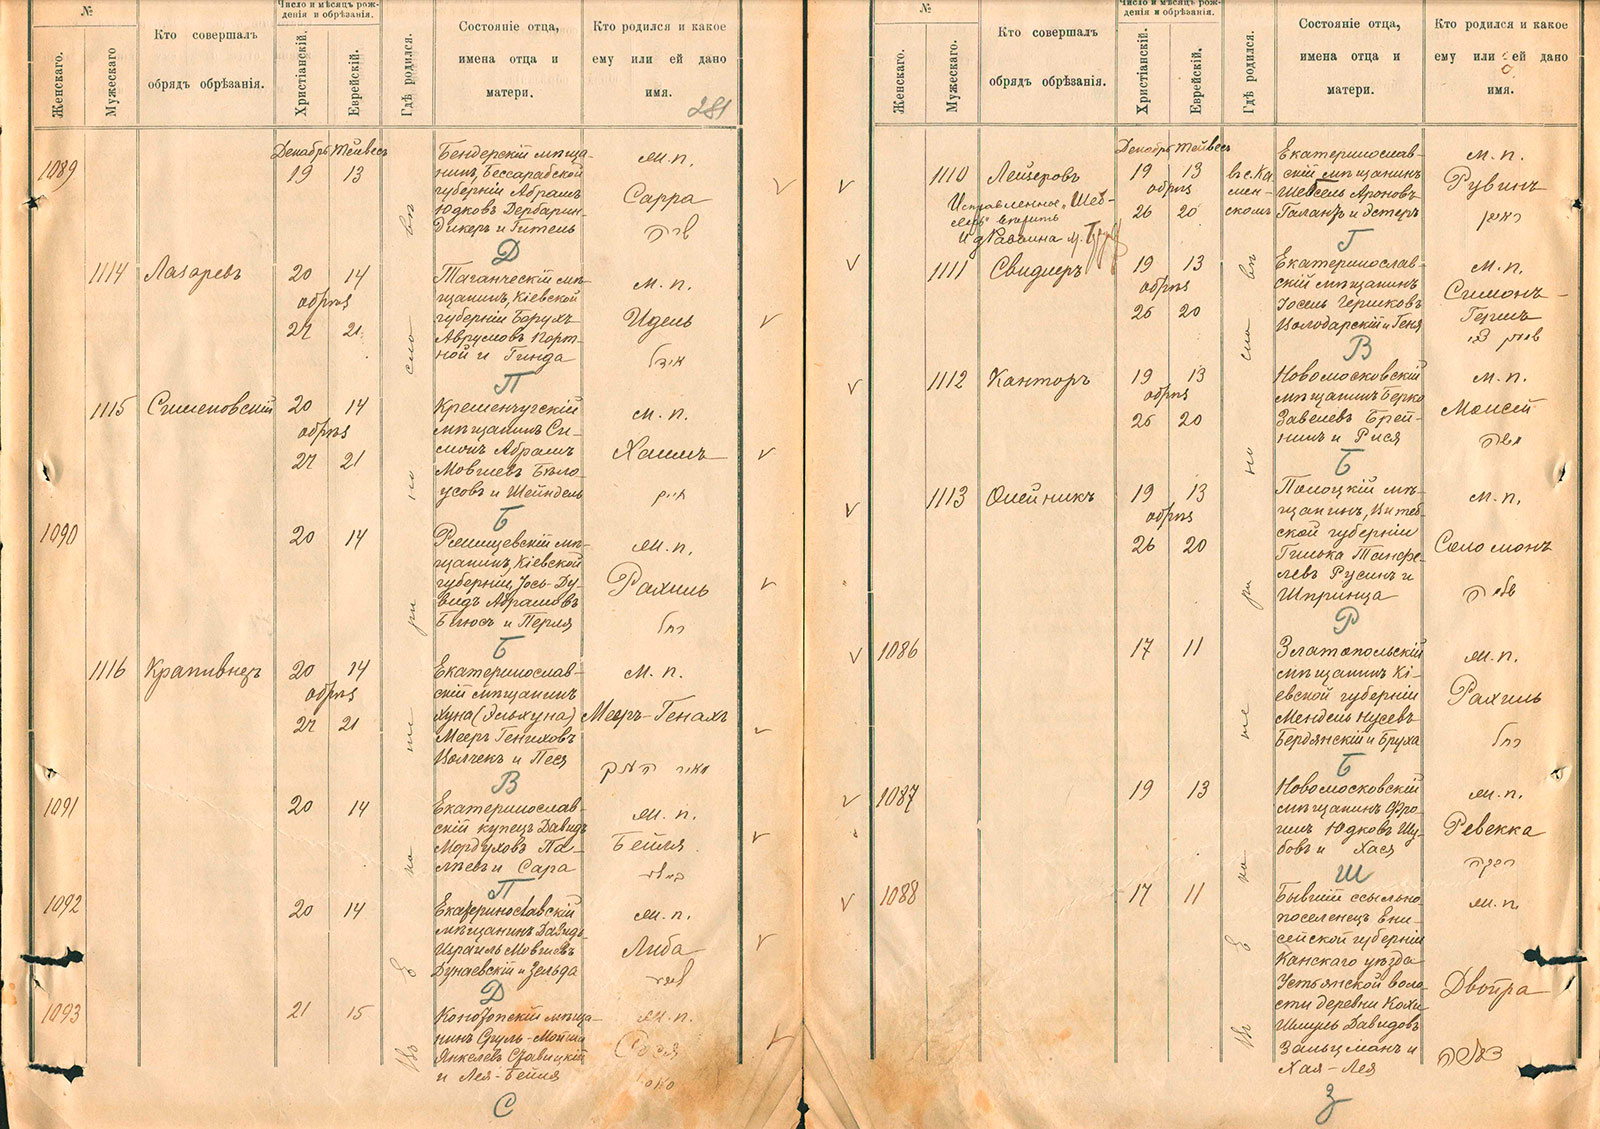 №
Женскаго.
Мужескаго
Кто совершалъ
обрядъ обрѣзанія.
Число и мѣсяцъ рож-
денія и обрѣзанія.
Христіанскій.
Еврейскій.
Гдѣ родился.
Состояніе отца,
имена отца и
матери.
Кто родился и какое
ему или ей дано
имя.
281
Декабрь Тейвесъ
1089
19 13
Бендерскій мѣща-
нинъ, Бессарабской
губерніи Абрамъ
Юдковъ Дербарин-
дикеръ и Гитель
Д
ж. п.
Сарра
שרה
1114
Лазаревъ
20 14
обрѣз
27 21
Таганческій мѣ-
щанинъ, Кіевской
губерніи Борухъ
Аврумовъ Порт-
ной и Гинда
П
м. п.
Идель
אידל
1115
Сименовскій
20 14
обрѣз
27 21
Кременчугскій
мѣщанинъ Си-
монъ Абрамъ
Мовшевъ Бѣло-
усовъ и Шейндель
Б
м. п.
Хаимъ
חיים
1090
20 14
Ржищевскій мѣ-
щанинъ, Кіевской
губерніи, Іось-Ду-
видъ Абрамовъ
и Перля
Б
ж. п.
Рахиль
רחל
1116
Крапивнецъ
20 14
обрѣз
27 21
Екатеринослав-
скій мѣщанинъ
Хуна (Эльхуна)
Мееръ Гениховъ
Волчекъ и Песя
В
м. п.
Мееръ-Генахъ
1091
20 14
Екатеринослав-
скій купецъ Давидъ
Мордуховъ Па-
и Сара
П
ж. п.
Бейля
ביילא
1092
20 14
Екатеринославскій
мѣщанинъ Давидъ-
Израиль Мовшевъ
Дунаевскій и Зельда
Д
ж. п.
Либа
ליבא
1093
21 15
Конотопскій мѣща-
нинъ Сруль-Мотель
Янкелевъ Ставицкій
и Лея-Бейля
С
ж. п.
Въ Екатеринославѣ
№
Женскаго.
Мужескаго.
Кто совершалъ
обрядъ обрѣзанія.
Число и мѣсяцъ рож-
денія и обрѣзанія.
Христіанскій.
Еврейскій.
Гдѣ родился.
Состояніе отца,
имена отца и
матери.
Кто родился и какое
ему или ей дано
имя.
Декабрь Тейвесъ
1110
Лейзеровъ
19 13
обрѣз
26 20
въ с. Ка
мен-
скомъ
Екатеринослав-
скій мѣщанинъ
Шевсель Ароновъ
Галантъ и Эстеръ
Г
м. п.
Рувинъ
ראובן
Исправленное „Шев-
сель" вѣрить
1111
Свидлеръ
19 13
обрѣз
26 20
Екатеринослав-
скій мѣщанинъ
Іосель Гершковъ
Володарскій и Геня
В
м. п.
Симонъ-
Гершъ
1112
Канторъ
19 13
обрѣз
26 20
Новомосковскій
мѣщанинъ Берко
Завелевъ Брей-
нинъ и Рися
Б
м. п.
Моисей
משה
1113
Олейникъ
19 13
обрѣз
26 20
Полоцкій мѣ-
щанинъ, Витеб-
ской губерніи
Гилька Танфе-
левъ Русинъ и
Шпринца
Р
м. п.
Соломонъ
שלמה
1086
17 11
Златопольскій
мѣщанинъ Кі-
евской губерніи
Мендель Нусевъ
Бердянскій и Бруха
Б
ж. п.
Рахиль
רחל
1087
19 13
Новомосковскій
мѣщанинъ Фро-
имъ Юдковъ Шу-
бовъ и Хася
Ш
ж. п.
Ревекка
רבקה
1088
17 11
Бывшій ссыльно
поселенецъ Ени-
сейской губерніи
Канскаго уѣзда
Устьянской воло-
сти деревни
Шмуль Давидовъ
Зальцманъ и
Хая-Лея
З
ж. п.
Двойра
דבורה
Въ Екатеринославѣ